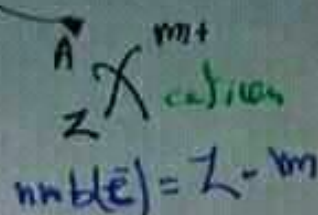 A
Z X m+ cation
nmb(ē) = Z - m